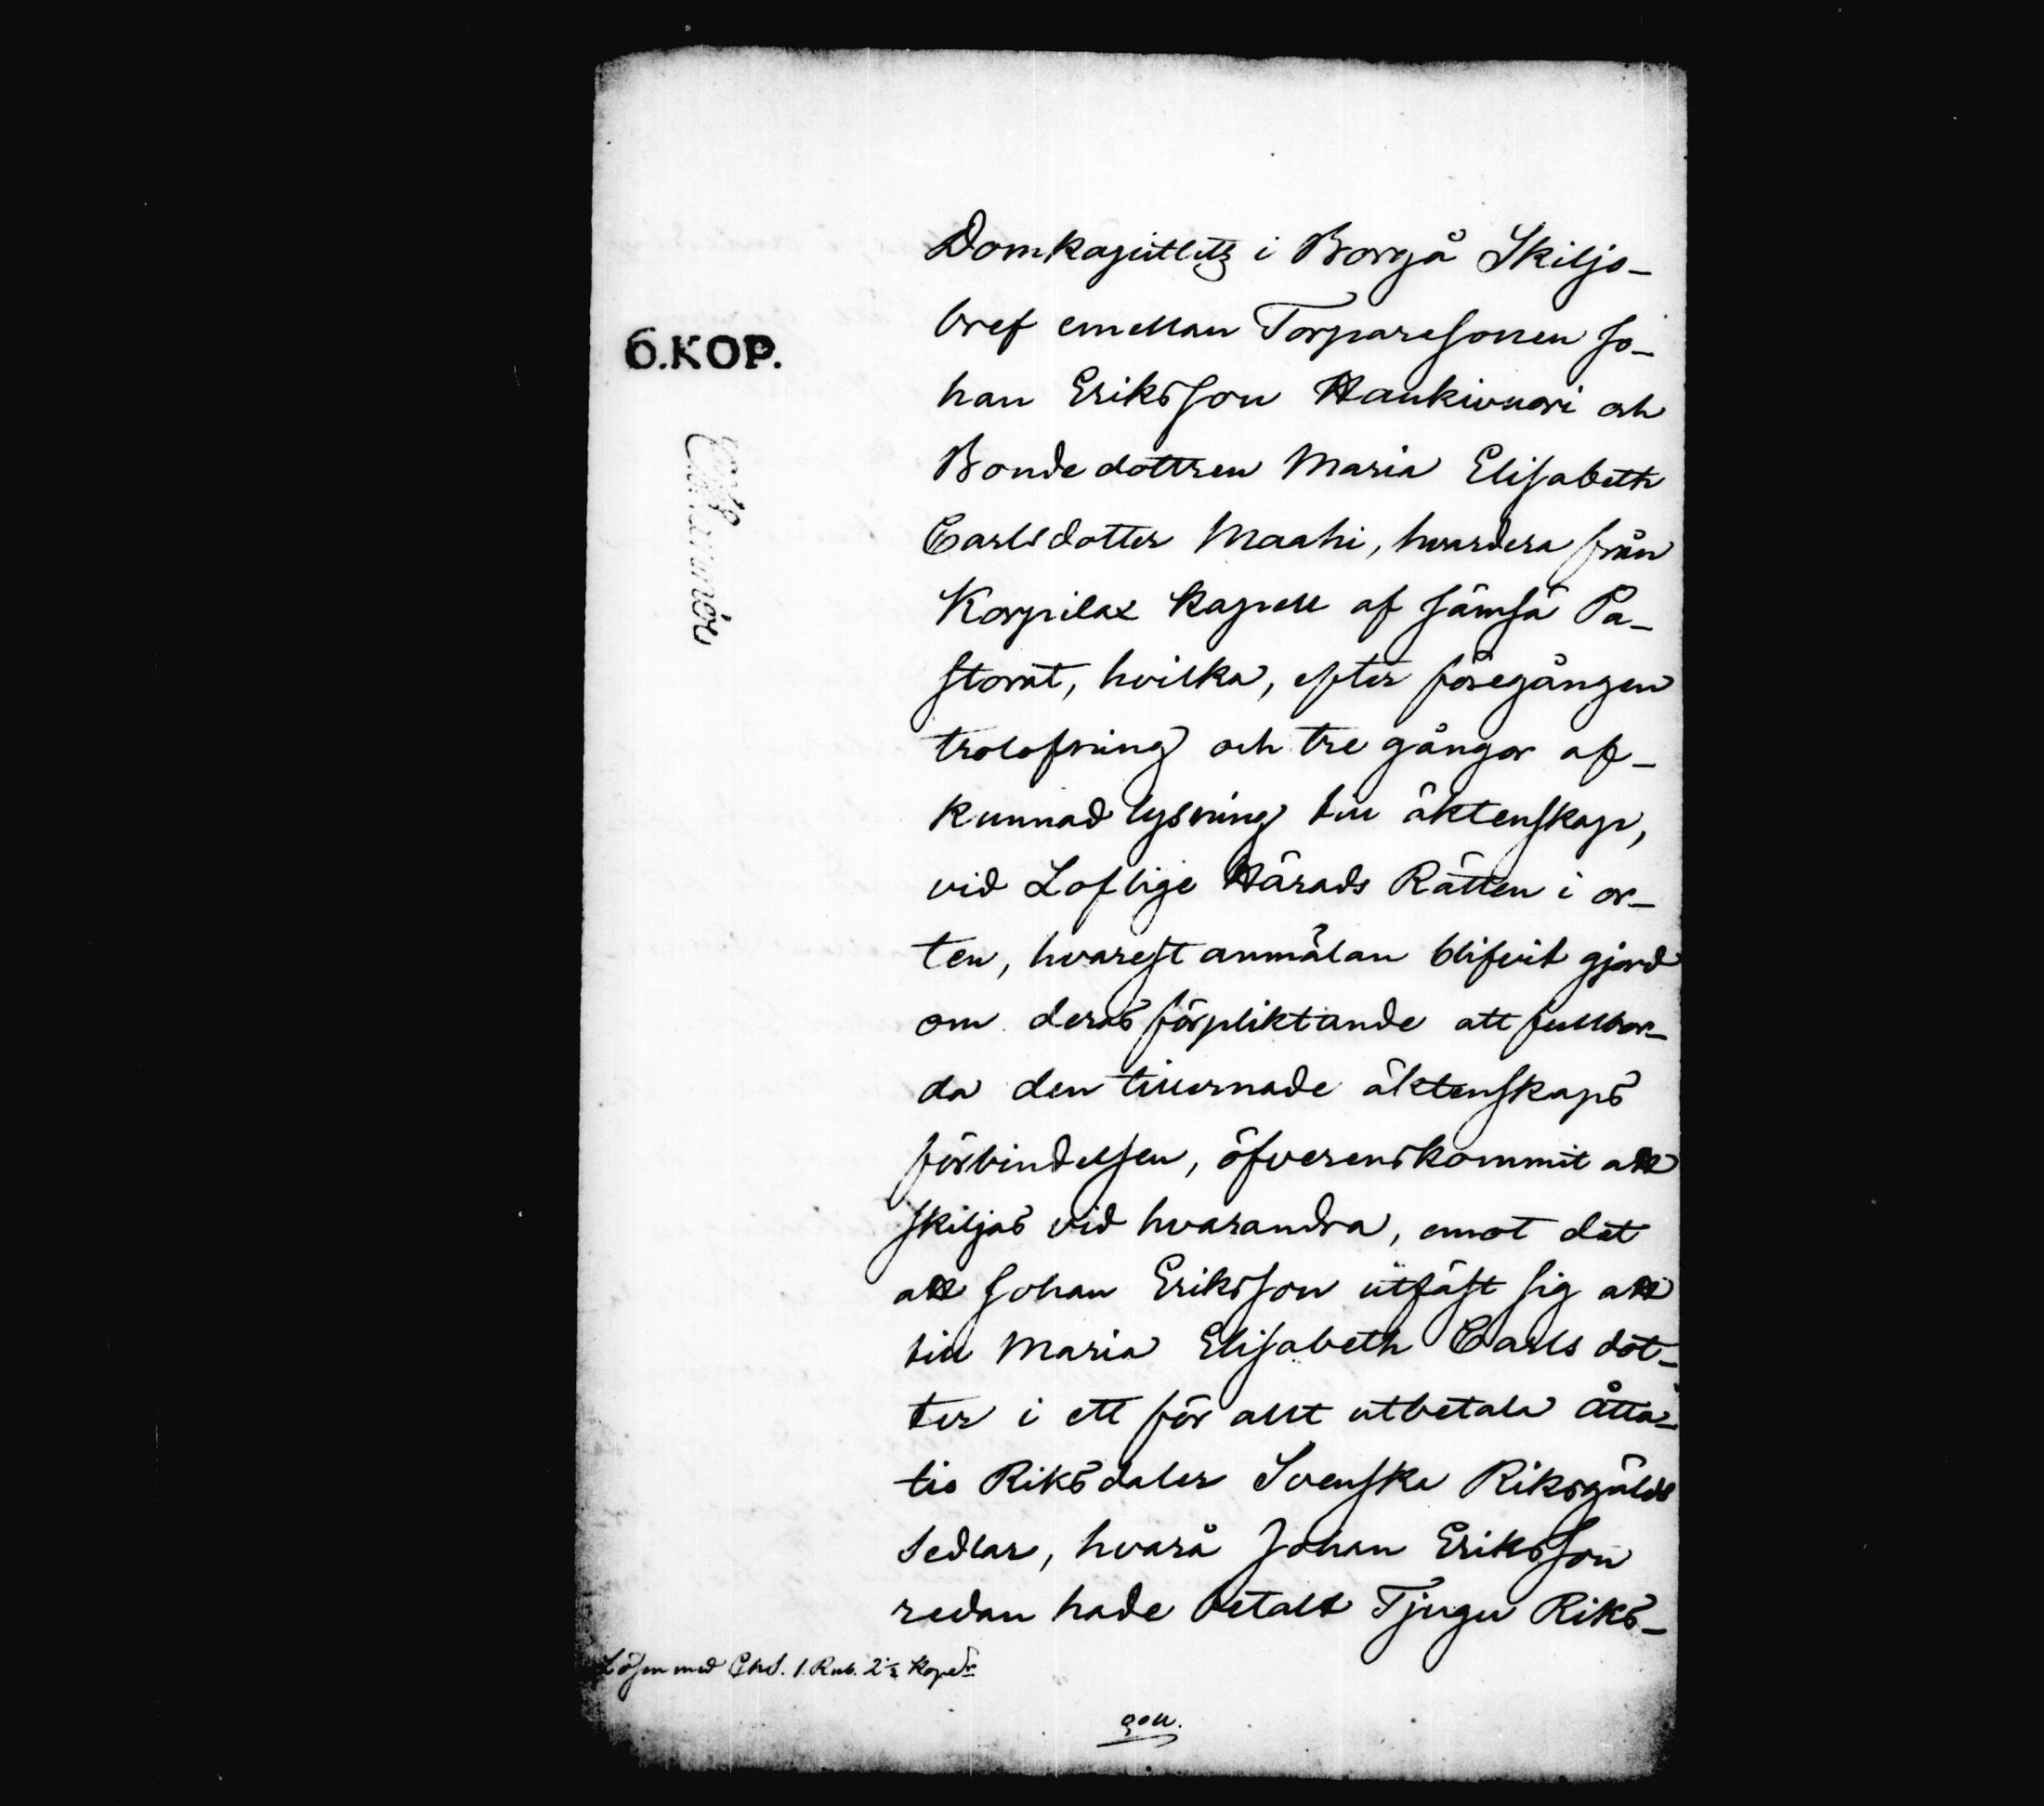 Domkapitletz i Borgå Skiljo-
bref emellan Torparesonen Jo-
han Eriksson Haukivuori och
Bondedottren Maria Elisabeth
Carlsdotter Maahi, hvardera från
Korpilax kapell af Jämsä Pa-
storat, hvilka, efter föregången
trolofning och tre gångor af-
kunnad lysning till äktenskap,
vid Loflige Härads Rätten i or-
ten, hvarest anmälan blifvit gjord
om deras förpliktande att fullbor-
da den tillernade äktenskaps
förbindelsen, öfverenskommit att
skiljas vid hvarandra, emot det
att Johan Eriksson utfäst sig att
till Maria Elisabeth Carlsdot-
ter i ett för allt utbetala åtta-
tio Riksdaler Svenska Riksgälds
sedlar, hvarå Johan Eriksson
redan hade betalt Tjugu Riks-
6.KOP.
Lösen med Ch.S. 1. Rub. 2½ Kop. Sr